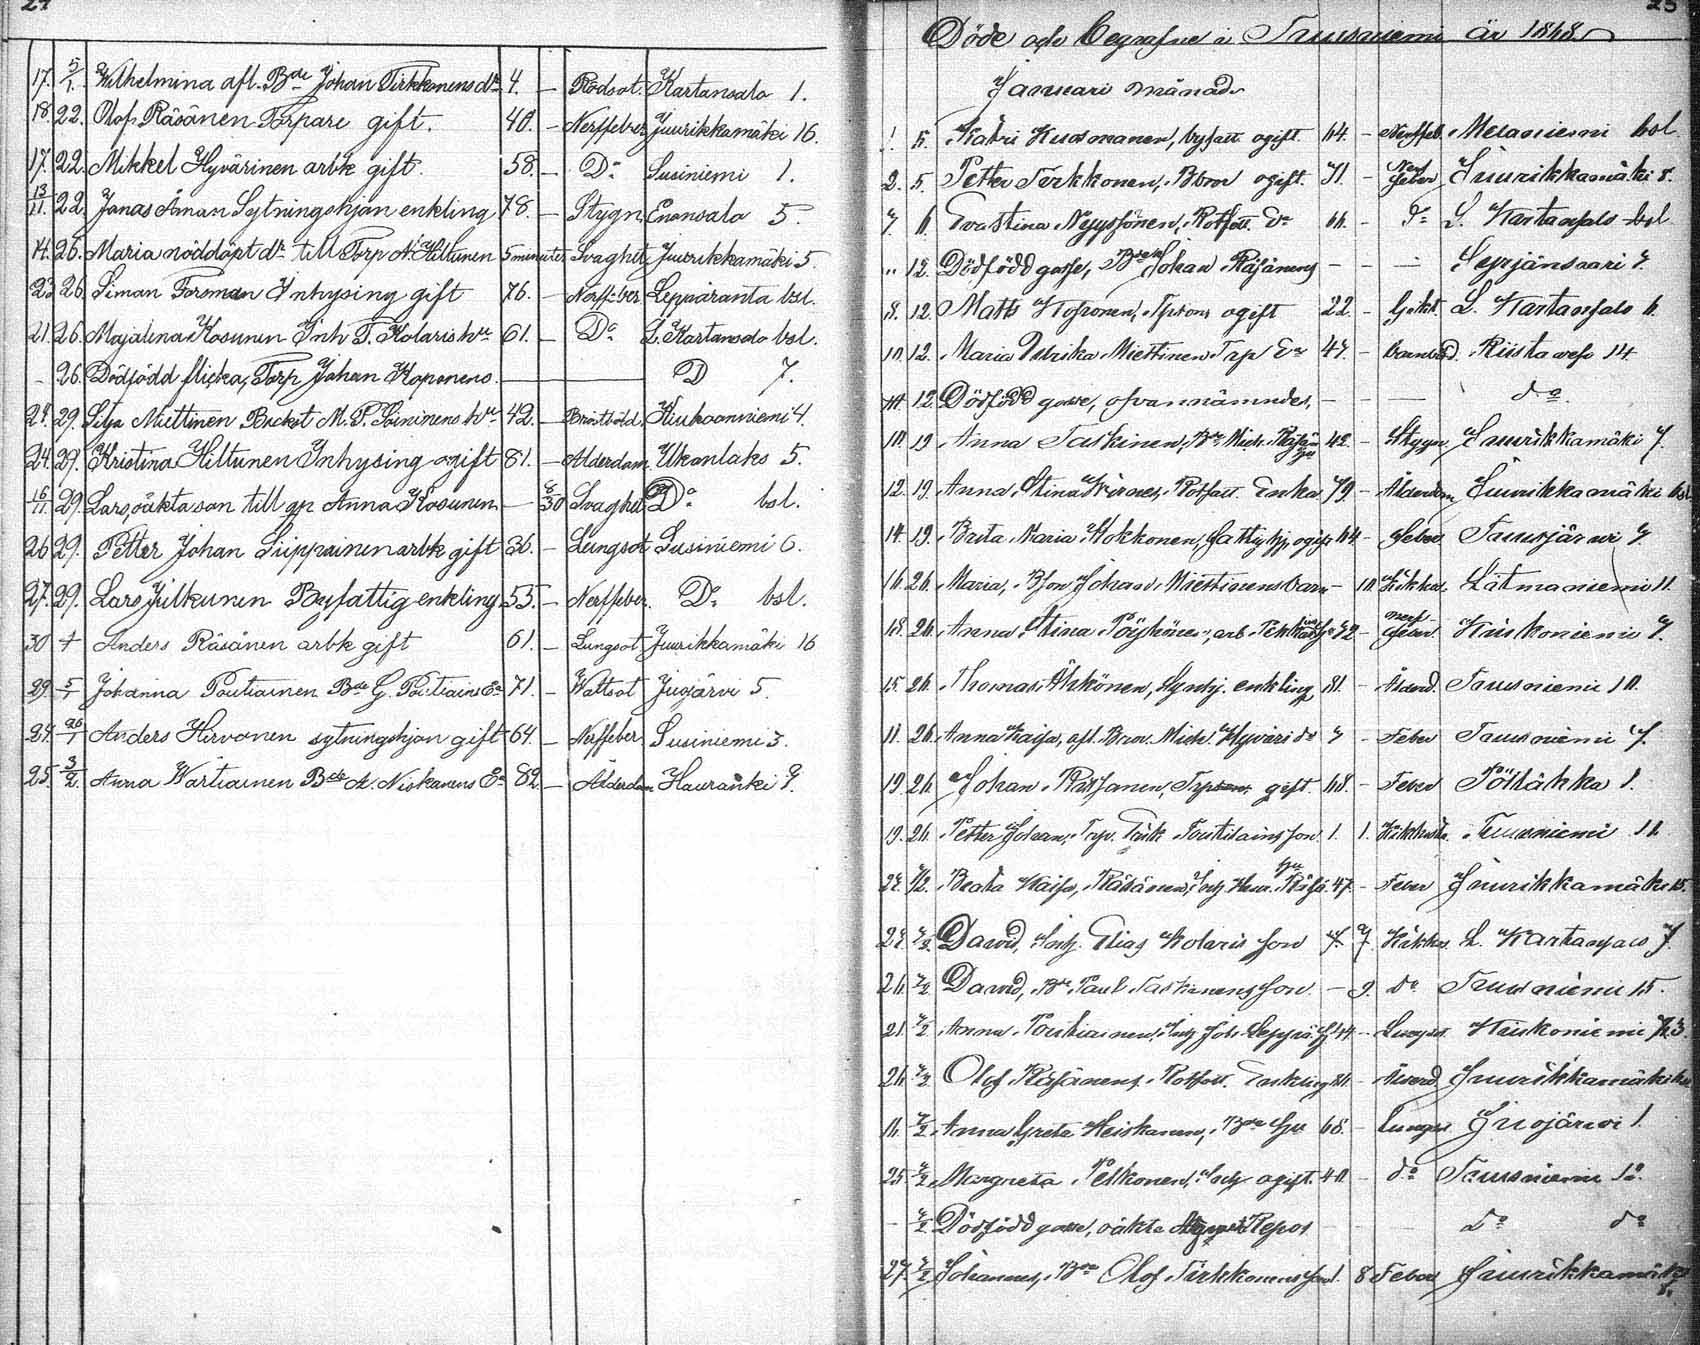 24
17. 5/1. Wilhelmina afl. Bde Johan Tirkkonens dr 4. — Rödsot. Kartansalo 1.
18. 22. Olof Räsänen Torpare gift. 40. — Nerffeber Juurikkamäki 16.
17. 22. Mikkel Hyvärinen arbk gift. 58. — Do Susiniemi 1.
13/11. 22. Jonas Åman Sytningshjon enkling 78. — Stygn Enonsalo 5
14. 26. Maria nöddöpt dr till Torp A. Hiltunen 5 minuter Svaghet Juurikkamäki 5.
23 26. Siman Forsman Inhysing gift 76. — Nerffeber Leppäranta bsl.
21. 26. Majalena Kosunen Inh T. Kolaris hu 61. — Do L. Kartansalo bsl.
- 26. Dödfödd flicka, Torp Johan Koponens — D 7.
24. 29. Silja Miettinen Backst M. P. Soininens hu 42. — Bröstböld. Kiukoonniemi 4.
24. 29. Kristina Hiltunen Inhysing ogift 81. — Alderdom Ukonlaks 5.
16/11. 29. Lars, oäkta son till gp Anna Kosunen — 8/30 Svaghet Do bsl.
26 29. Petter Johan Siippainen arbk gift 36. — Lungsot Susiniemi 6.
27. 29. Lars Julkunen Byfattig enkling 53. — Nerffeber. Do bsl.
30 + Anders Räsänen arbk gift 61. — Lungsot Juurikkamäki 16
29. 5/1 Johanna Poutiainen Bde G. Poutiains Ea 71. — Wattsot Juojärvi 5.
24. 26/1 Anders Hirvonen sytningshjon gift 64. — Nerffeber Susiniemi 3.
25. 3/2. Anna Wartiainen Bde A. Niskanens Ea 82. — Ålderdom Hauranki 9.
25
Döde och Begrafne i Tuusniemi år 1868.
Januari månad
1. 5. Katri Kuosmanen, byfatt. ogift 64. — Nerffeb. Melaniemi bsl.
2. 5. Petter Tirkkonen, Bbror ogift. 31. — Nerffeber Juurikkamäki 8.
7 6. Eva Stina Nyyssönen, Rotfatt. Da 66. — do L. Kartansalo bsl
" 12. Dödfödd gosse, Johan Räsänens — — — Syrjänsaari 7.
8. 12. Matts Koponen, ogift 22 — L. Kartansalo 6.
10. 12. Maria Ulrika Miettinen Trp 47. — Barnbörd. Riistavesi 14
12. Dödfödd gosse, ofvannämndes, — — — do.
10. 19 Anna Taskinen, Bde Mich. Räsän hu 42. — Stygn Juurikkamäki 7.
12. 19. Anna Stina Rotfatt. Enka 79 — Ålderdom Juurikkamäki bsl
14. 19. Brita Maria Kokkonen, fattighj. ogift 64 — Feber Tuusjärvi 7.
16. 26. Maria, Johan Miettinens barn — 10. Kikhos. Lätmäniemi 11.
18. 26. Anna Stina Pöyhönen, arb. 72 — nerf feber Kiukoniemi 7.
15. 26. Thomas Ähkönen, Synhj. enkling, 81. — Ålderd. Tuusniemi 10.
11. 26. Anna Kaisa, afl. Mich Hyväri dr 7 — Feber Tuusniemi 7.
19 26. Johan Räsänen, Trp gift. 68. — Feber Pöllähkä 1.
19. 26. Petter Johan, Trp. Poutiains son 1. 1. Kikhosta Tuusniemi 11.
24. 2/2. Beata Kaisa, Räsänen, Inh. Henr. Räsä. hu 47 — Feber Juurikkamäki 15.
24. 2/2. David, Inh. Elias Kolaris son 7. 7. Kikhos. L. Kartansalo 7.
26. 2/2 David, Bde Paul Taskinens son — 9. do Tuusniemi 15.
21. 2/2 Anna Poutiainen, Inh Joh. Leppä. 44 — Lungsot Kiukoniemi 3
26. 2/2 Olof Räsänens, Rotfatt. Enkling — Ålderd Juurikkamäki
11. 2/2 Anna Greta Heiskanen, Bde hu 68. — Lungsot Juojärvi 1.
25. 2/2 Margreta Pelkonen, Inh ogift. 40 — do Tuusniemi 12.
— 2/2 Dödfödd gosse, oäkta Repos — — do do
27. 2/2 Johannes, Bde Olof Tirkkonens son 1. 8 Feber Juurikkamäki 8.